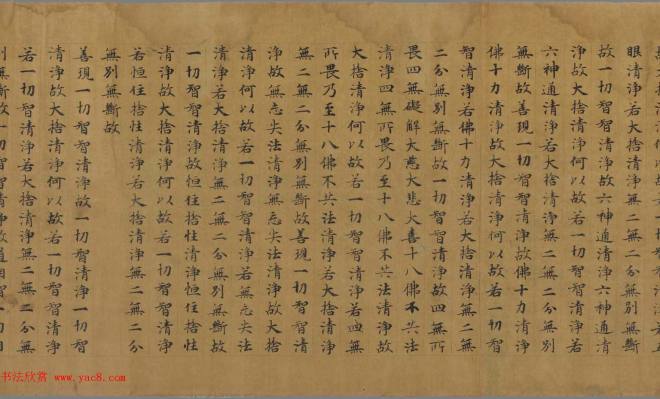 眼清淨若大捨清淨無二無二分無別無斷
故一切智智清淨故六神通清淨六神通清
淨故大捨清淨何以故若一切智智清淨若
六神通清淨若大捨清淨無二無二分無別
無斷故善現一切智智清淨故佛十力清淨
佛十力清淨故大捨清淨何以故若一切智
智清淨若佛十力清淨若大捨清淨無二無
二分無別無斷故一切智智清淨故四無所
畏四無礙解大慈大悲大喜十八佛不共法
清淨四無所畏乃至十八佛不共法清淨故
大捨清淨何以故若一切智智清淨若四無
所畏乃至十八佛不共法清淨若大捨清淨
無二無二分無別無斷故善現一切智智清
淨故無忘失法清淨無忘失法清淨故大捨
清淨何以故若一切智智清淨若無忘失法
清淨若大捨清淨無二無二分無別無斷故
一切智智清淨故恒住捨性清淨恒住捨性
清淨故大捨清淨何以故若一切智智清淨
若恒住捨性清淨若大捨清淨無二無二分
無別無斷故
善現一切智智清淨故一切智清淨一切智
清淨故大捨清淨何以故若一切智智清淨
若一切智清淨若大捨清淨無二無二分無
别無斷故一切智智清淨故道相智一切相
书法欣赏
www.yac8.com